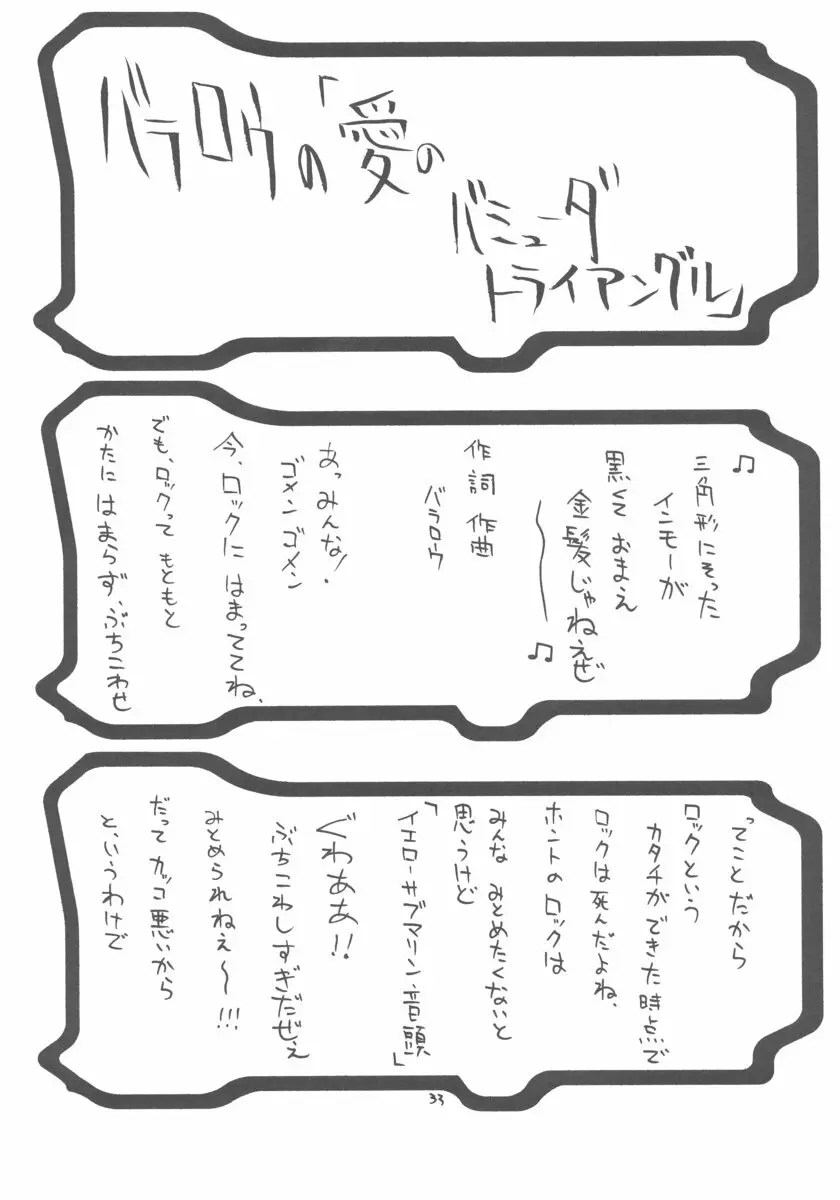 バラロウの「愛の
バミューダ
トライアングル」
♫三角形にそった
インモーが
黒くて おまえ
金髪じゃねえぜ〜♫
作詞 作曲
バラロウ
あっ みんな!
ゴメン ゴメン
今、ロックに はまっててね、
でも、ロックって もともと
かたに はまらず、ぶちこわせ
ってことだから
ロックという
カタチが できた時点で
ロックは死んだよね、
ホントの ロックは
みんな みとめたくないと
思うけど
「イエローサブマリン音頭」
ぐわああ!!
ぶちこわしすぎだぜぇ
みとめられねぇ〜!!!
だって カッコ悪いから
と、いうわけで
33